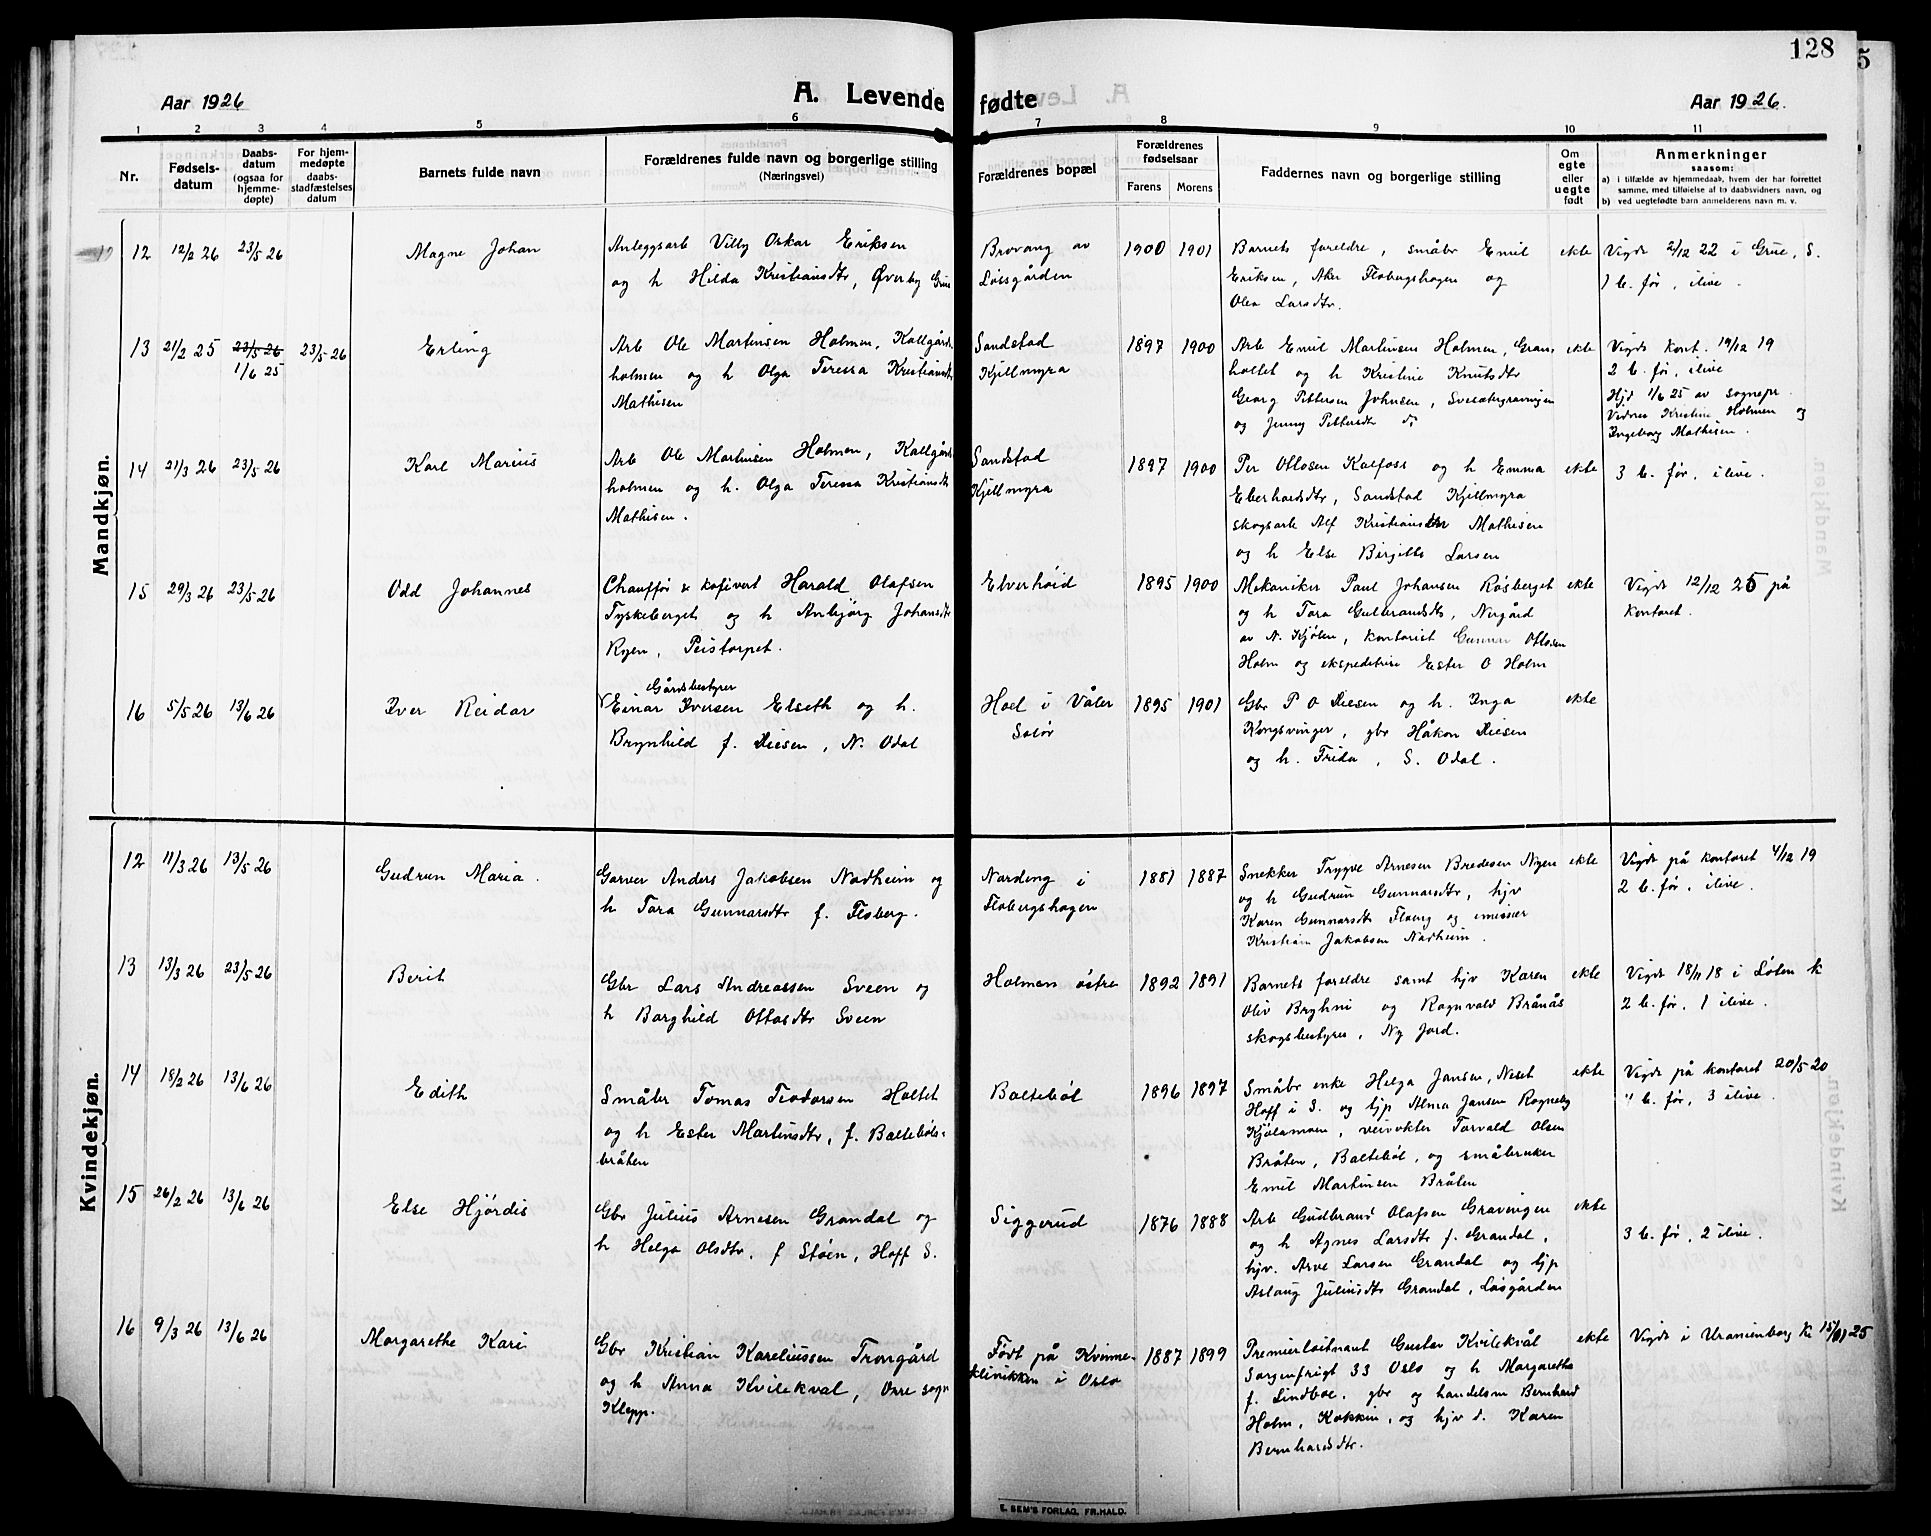 128
5
Aar 1926
A. Levende
fødte
Aar 1926.
1 2 3 4 5 6 7 8 9 10 11
Nr.
Fødsels-
datum
Daabs-
datum
(ogsaa for
hjemme-
døpte)
For hjem-
medøpte
daabs-
stadfæstelses
datum
Barnets fulde navn
Forældrenes fulde navn og borgerlige stilling
(Næringsvei)
Forældrenes bopæl
Forældrenes
fødselsaar
Farens Morens
Faddernes navn og borgerlige stilling
Om
egte
eller
uegte
født
Anmerkninger
saasom:
a) i tilfælde av hjemmedaab, hvem der har forrettet
samme, med tilføielse af to daabsvidners navn, og
b) ved uegtefødte barn anmelderens navn m. v.
Mandkjøn.
12 12/2 26 23/5 26
Magne Johan
Anleggsarb Villy Oskar Eriksen
og h Hilda Kristiansdtr, Øverby Grue
Brovang av
Løsgården
1900 1901
Barnets foreldre, småbr Emil
Eriksen, Aker Flobergshagen og
Olea Larsdtr.
ekte
Vigde 2/12 22 i Grue, S.
1 b. før, ilive.
13 21/2 25 23/5 26
1/6 25
23/5 26
Erling
Arb Ole Martinsen Holmen, Kallgårds-
holmen og h Olga Teressa Kristiansdtr
Mathisen
Sandstad
Kjellmyra
1897 1900
Arb Emil Martinsen Holmen, Gran-
holtet og h Kristine Knutsdtr
Georg Pettersen Johnsen, Svesætergravingen
og Jenny Pettersdtr
ekte
Vigde kont. 19/12 19
2 b. før, ilive
Hjd 1/6 25 av sognepr.
Vidner Kristine Holmen og
Ingeborg Mathisen.
14 21/3 26 23/5 26
Karl Marius
Arb Ole Martinsen Holmen, Kallgårds-
holmen og h. Olga Teressa Kristiansdtr
Mathisen.
Sandstad
Kjellmyra
1897 1900
Per Ottosen Kalfoss og h Emma
Eberhardsdtr, Sandstad Kjellmyra
skogsarb Alf Kristiansen Mathisen
og h Else Birgitte Larsen
ekte
3 b. før, ilive.
15 29/3 26 23/5 26
Odd Johannes
Chauffør & kafivert Harald Olafsen
Tyskeberget og h Anbjørg Johansdtr
Ryen, Peistorpet.
Elverhøid
1895 1900
Mekaniker Paul Johansen Røsberget
og h Tora Gulbrandsdtr, Nergård
av N. Kjølen, kontorist Gunnar Ottosen
Holm og ekspeditrise Ester O Holm
ekte
Vigde 12/12 25 på
kontoret.
16 5/5 26 13/6 26
Iver Reidar
Gårdsbestyrer
Einar Iversen Elseth og h.
Brynhild f. Diesen, N. Odal
Hoel i Våler
Solør
1895 1901
Gbr P O Diesen og h. Inga
Kongsvinger, gbr Håkon Diesen
og h. Frida, S. Odal.
ekte
Kvindekjøn.
12 11/3 26 13/5 26
Gudrun Maria.
Garver Anders Jakobsen Nordheim og
h Tora Gunnarsdtr f. Floberg.
Nordeng i
Flobergshagen
1881 1887
Snekker Trygve Arnesen Bredesen Nyen
og h Gudrun Gunnarsdtr, hjv
Karen Gunnarsdtr Floberg og emissær
Kristian Jakobsen Nordheim.
ekte
Vigde på kontoret 4/12 19
2 b. før, ilive.
13 13/3 26 23/5 26
Berit
Gbr Lars Andreassen Sveen og
h Borghild Ottosdtr Sveen
Holmen østre
1892 1891
Barnets foreldre samt hjv Karen
Oliv Bryhni og Ragnvald Brånås
skogsbestyrer, Ny Jord.
ekte
Vigde 18/11 18 i Løten k
2 b. før, 1 ilive.
14 18/2 26 13/6 26
Edith
Småbr Tomas Teodorsen Holtet
og h Ester Martinsdtr, f. Baltebøls-
bråten
Baltebøl
1896 1897
Småbr enke Helga Jansen, Neset
Hoff i S. og tjp Alma Jansen Rogneby
Kjølamoen, veivokter Torvald Olsen
Bråten, Baltebøl, og småbruker
Emil Martinsen Bråten
ekte
Vigde på kontoret 20/5 20
4 b. før, 3 ilive.
15 26/2 26 13/6 26
Else Hjørdis
Gbr Julius Arnesen Grandal og
h Helga Olsdtr, f Støen, Hoff S.
Siggerud
1876 1888
Arb Gudbrand Olafsen Gravingen
og h Agnes Larsdtr f. Grandal,
hjv. Arve Larsen Grandal og tjp
Aslaug Juliusdtr Grandal, Løsgården
ekte
3 b. før, 2 ilive.
16 9/3 26 13/6 26
Margarethe Kari
Gbr Kristian Kareliussen Trongård
og h Anna Kvilekval, Orre sogn
Klepp.
Født på Kvinne-
klinikken i Oslo
1887 1899
Premierløitnant Gustav Kvilekvål
Sorgenfrigt 33 Oslo og h Margarethe
f. Lindboe, gbr og handelsm Bernhard
Holm, Kokkin, og hjv d. Karen
Bernhardsdtr.
ekte
Vigde i Uranienborg k. 15/ 25
E. SEM'S FORLAG, FR.HALD.